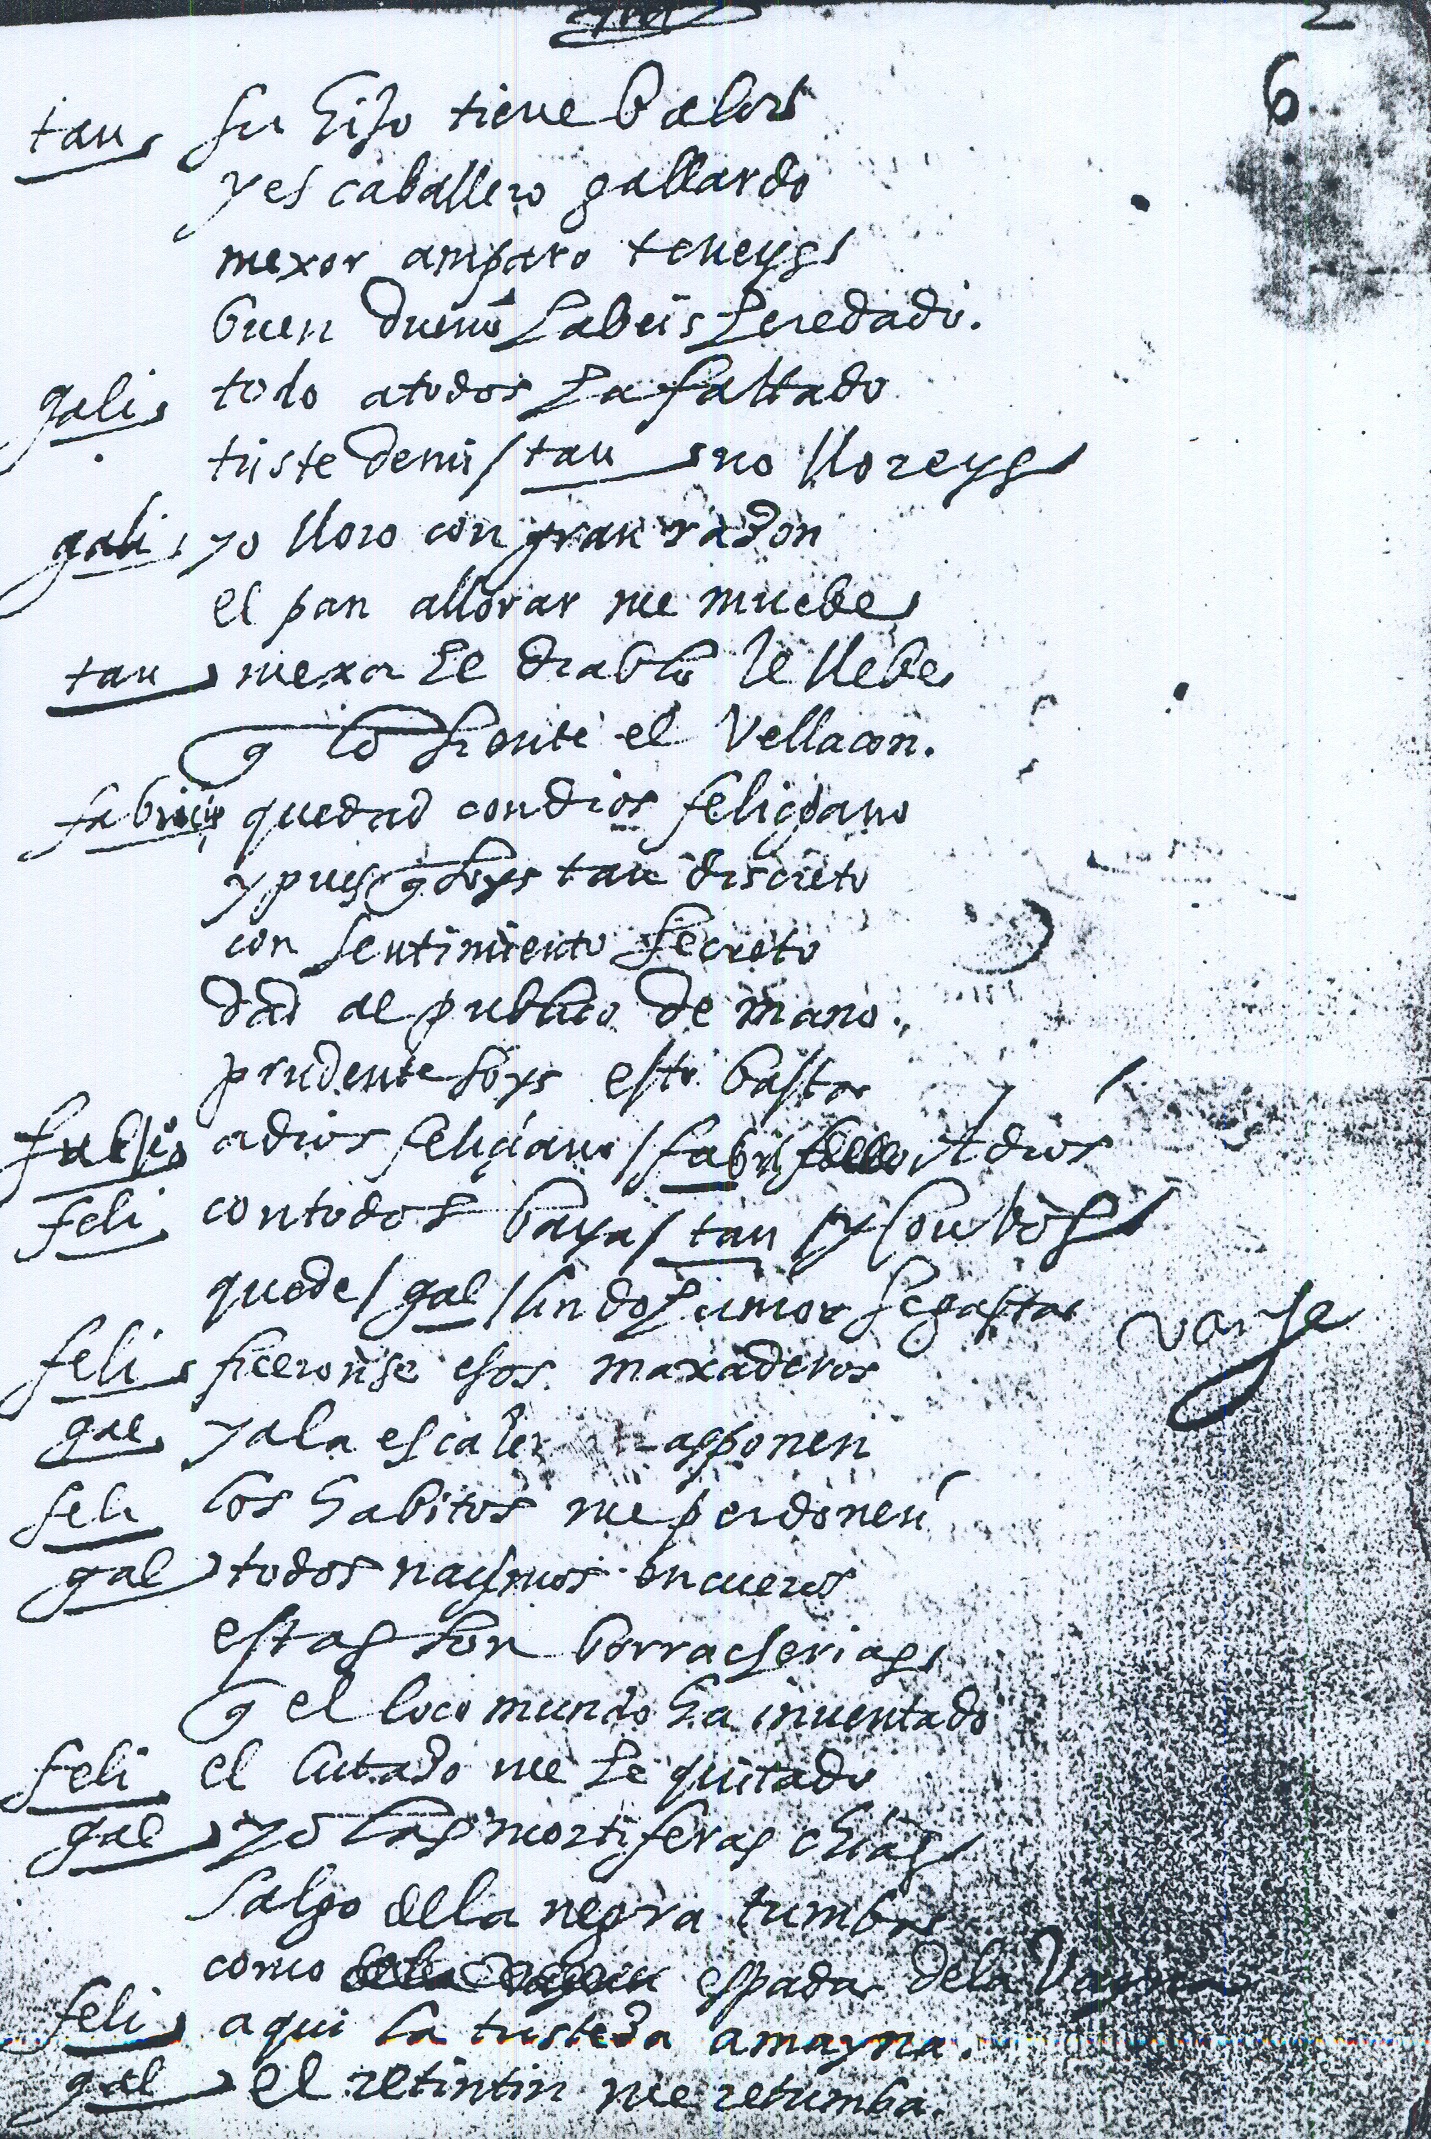 2
6
tan su hijo tiene balor
y es caballero gallardo
mexor amparo teneys
buen dueño habeis heredado.
gali todo atodos ha faltado
triste demi / tan no lloreys
gali yo lloro con gran razon
el pan allorar me muebe
tan mexor le diablo le llebe
q lo siente el vellacon.
fabricio quedad condios feliçiano
y pues q soys tan discreto
con sentimiento secreto
dad al publico de mano.
prudente soys esto basta
adios feliçiano / fabri Adios
feli contodos baya / tan / y con bos
quede / gal / lindo humor se gasta
vanse
feli fueronse esos maxaderos
gal ya la escalera
feli los habitos me perdonen
gal todos naçimos encueros
estas son borracherias
q el loco mundo ha inuentado
feli el lutado me he quitado
gal yo las mortiferas chias
salgo dela negra tumba
como espada dela Vayna
feli aqui la tristeza amayna.
gal el retintin me retumba.